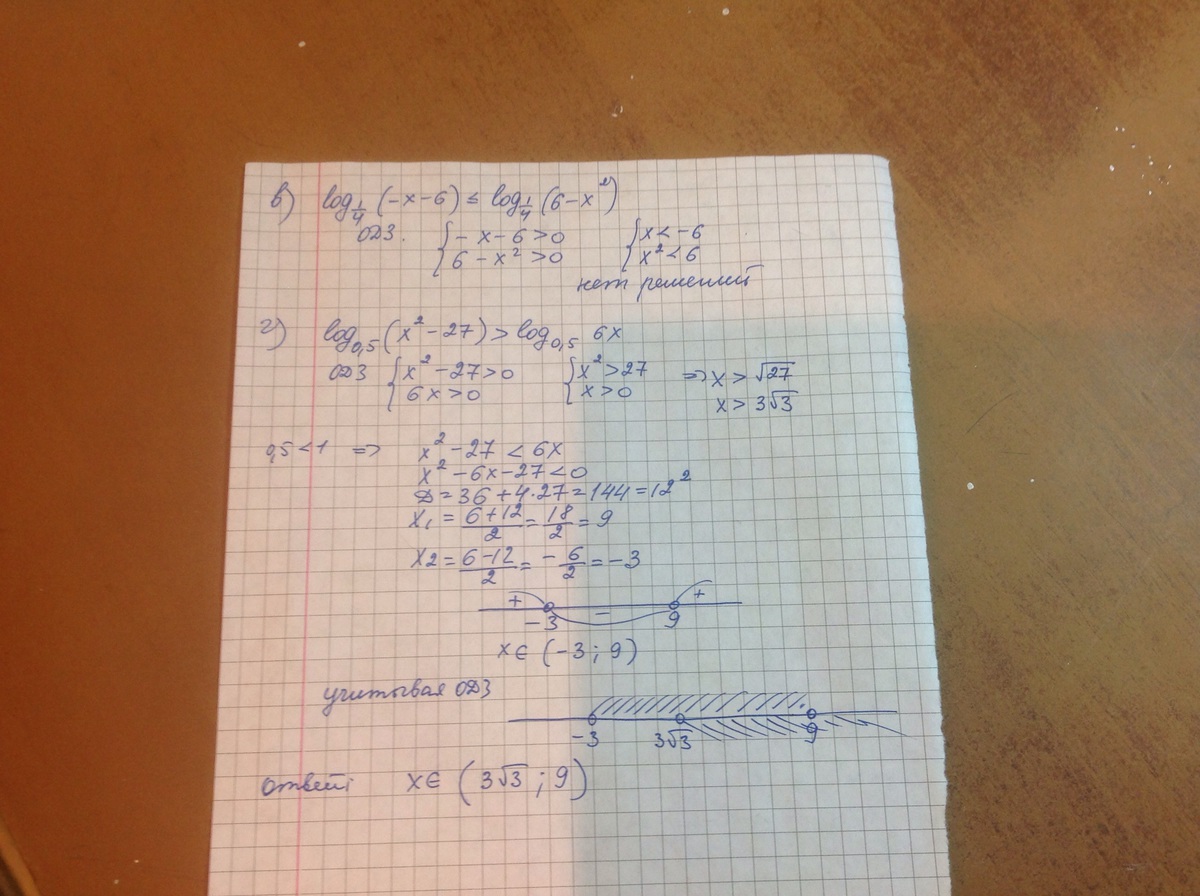 в) log 1/4 (-x-6) ≤ log 1/4 (6-x²)
ОДЗ. { -x-6>0 { x<-6
6-x²>0 x²<6
нет решений
г) log0,5 (x²-27) > log0,5 6x
ОДЗ { x²-27>0 { x²>27 => x>√27
6x>0 x>0 x>3√3
0,5<1 => x²-27<6x
x²-6x-27<0
D=36+4·27=144=12²
x1 = (6+12)/2 = 18/2 = 9
x2 = (6-12)/2 = -6/2 = -3
+ - +
-3 9
x∈(-3; 9)
учитывая ОДЗ
-3 3√3 9
ответ: x∈(3√3; 9)